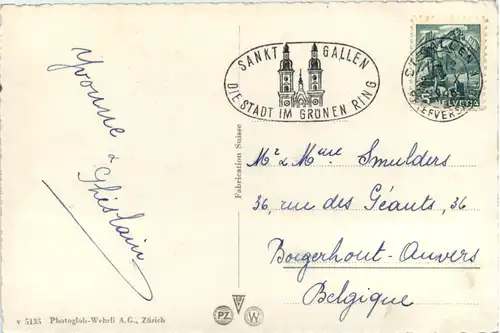 Yvonne & Ghislain
SANKT GALLEN
DIE STADT IM GRÜNEN RING
ST. GALLEN 1
BRIEFVERS
HELVETIA
Fabrication Suisse
Mr & Mme Smulders
36, rue des Géants, 36
Borgerhout-Anvers
Belgique
v 5135 Photoglob-Wehrli A.G., Zürich
PZ
W